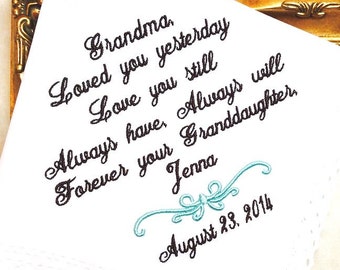 Grandma,
Loved you yesterday
Love you still
Always have, Always will
Forever your Granddaughter,
Jenna
August 23, 2014